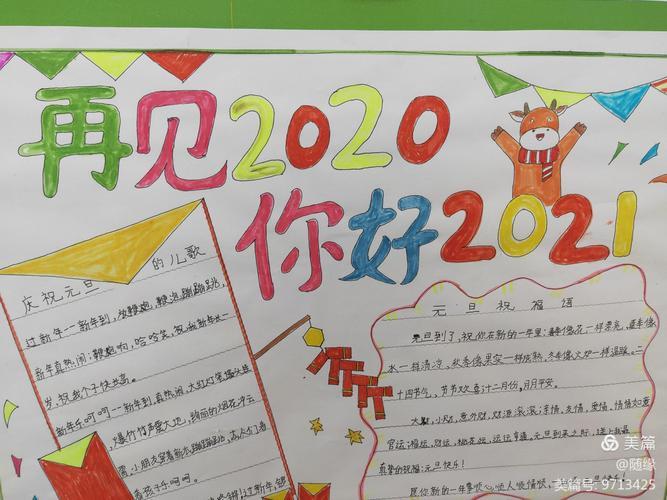 再见2020
你好2021
庆祝元旦的儿歌
过新年一新年到,放鞭炮,鞭炮蹦蹦跳,
新年真热闹;鞭炮响,哈哈笑,祝我新年长一
岁,祝我个子快长高。
新年乐呵呵一新年到,真热闹,大红灯笼
爆竹竹声震大地,绚丽的烟花冲云
元旦祝福语
元旦到了,祝你在新的一年里:春季像花一样漂亮,夏季像
水一样清凉,秋季像果实一样成熟,冬季像火炉一样温暖。二
十四节气,节节欢喜;十二月份,月月平安。
大财,小财,意外财,财源滚滚;亲情,友情,爱情,情情如意
官运,福运,财运,桃花运,运运亨通。元旦到来之际,送上最
真挚的祝福:元旦快乐!
愿你新的一年
美篇
@随缘
美篇号:9713425